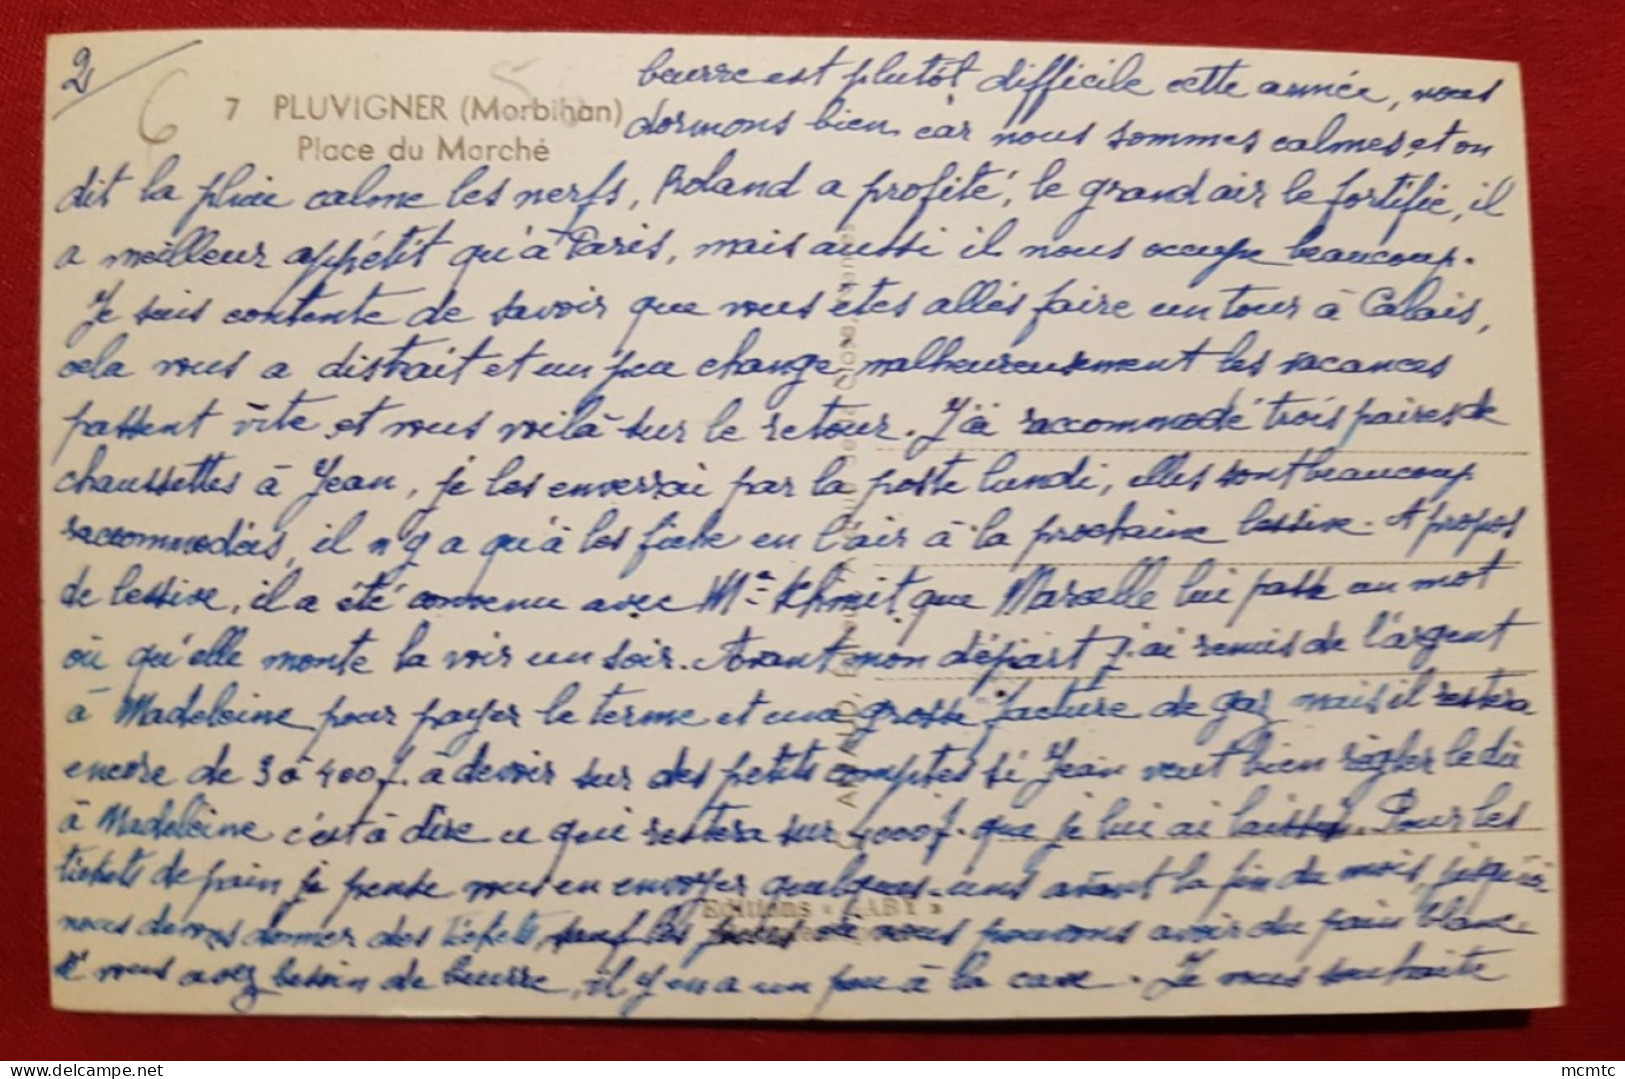 2/
6
7 PLUVIGNER (Morbihan)
Place du Marché
beurre est plutôt difficile cette année, nous
dormons bien car nous sommes calmes, et on
dit la pluie calme les nerfs, Roland a profité, le grand air le fortifie, il
a meilleur appétit qu'à Paris, mais aussi il nous occupe beaucoup.
Je suis contente de savoir que vous êtes allés faire un tour à Calais,
cela vous a distrait et un peu change, malheureusement les vacances
passent vite et vous voilà sur le retour. J'ai raccommodé trois paires de
chaussettes à Jean, je les enverrai par la poste lundi, elles sont beaucoup
raccommodées, il n'y a qu'à les fiche en l'air à la prochaine lessive. A propos
de lessive, il a été convenu avec Me Schmit que Marcelle lui passe un mot
où qu'elle monte la voir un soir. Avant mon départ j'ai remis de l'argent
à Madeleine pour payer le terme et une grosse facture de gaz mais il restera
encore de 3 à 400f. à devoir sur des petits comptes si Jean veut bien régler le dû
à Madeleine c'est à dire ce qui restera sur 4000f. que je lui ai laissés. Pour les
tickets de pain je pense vous en envoyer quelques-uns avant la fin du mois, jusqu'ici
nous devons donner des tickets, sauf les où nous pouvons avoir du pain blanc
Si vous avez besoin de beurre, il y en a un peu à la cave. Je vous souhaite
Editions « GABY »
mcmtc